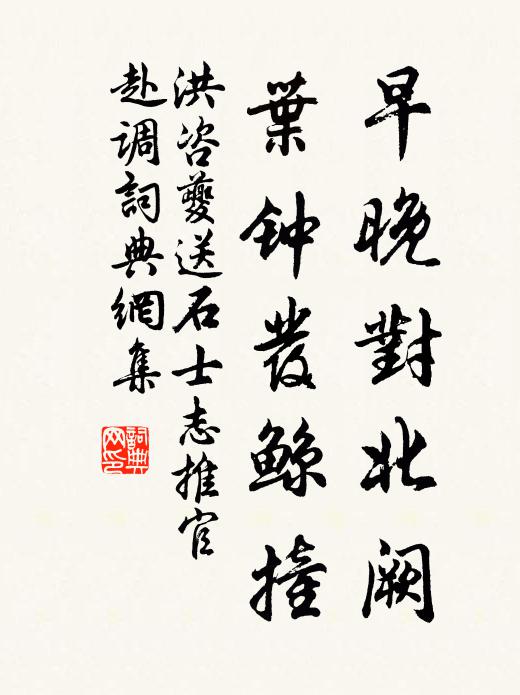 早晚對北闕
葉钟發鲸撞
洪咨夔送石士志推官
赴調詞典網集
詞典网印